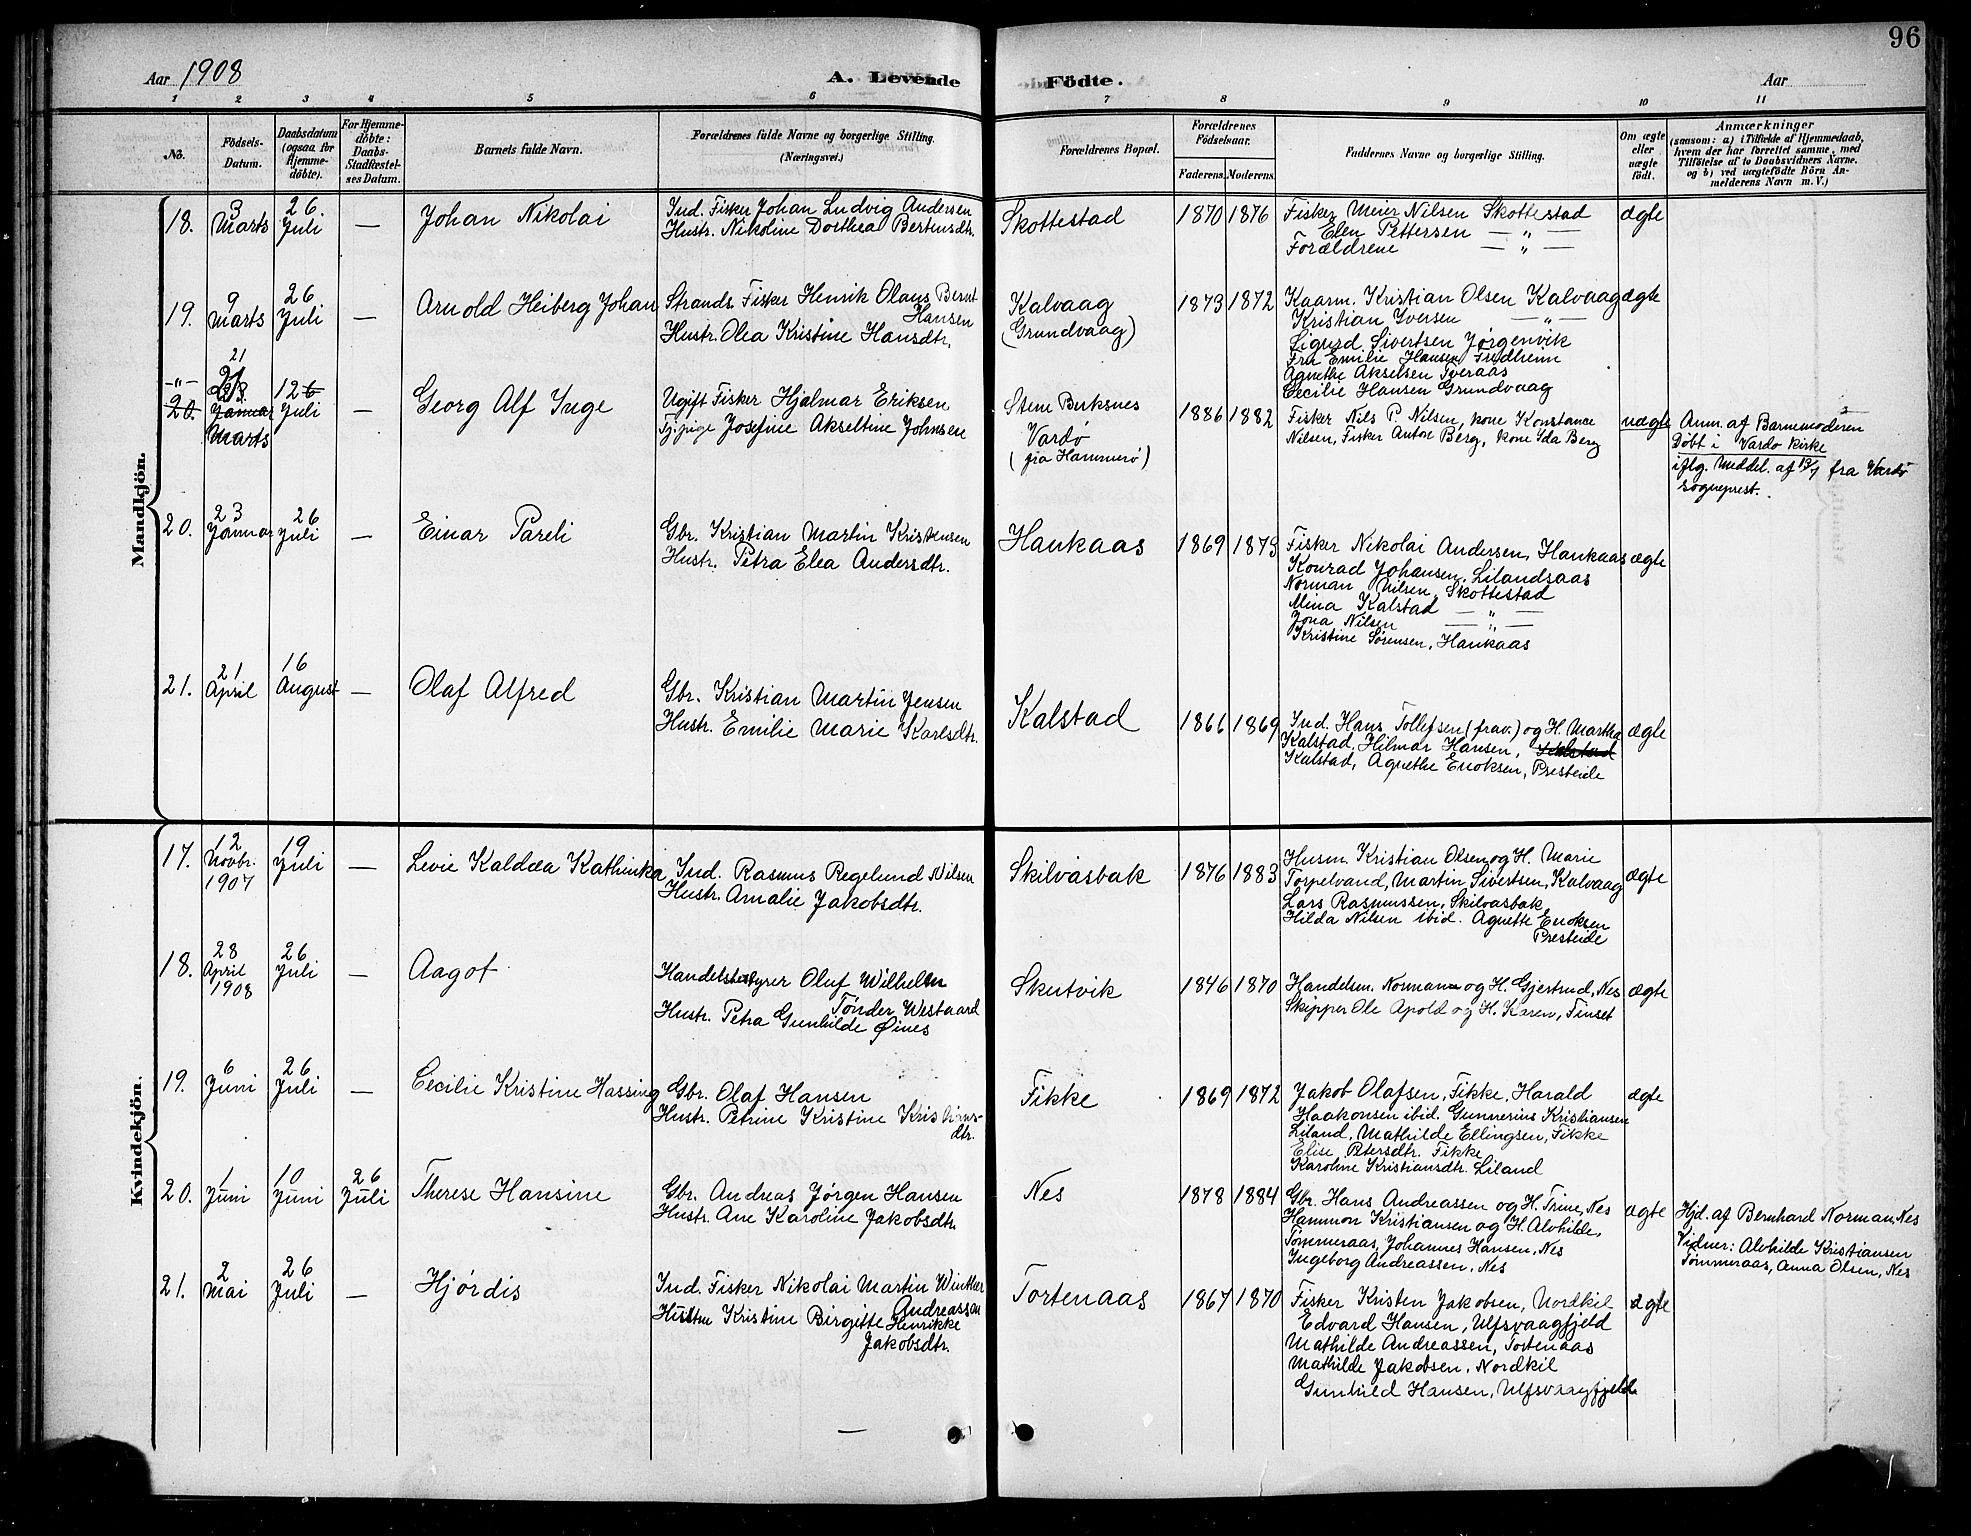 96
Aar 1908
A. Levende
Födte.
Aar
1 2 3 4 5 6 7 8 9 10 11
No.
Födsels-
Datum.
Daabsdatum
(ogsaa for
Hjemme-
döbte).
For Hjemme-
döbte:
Daabs-
Stadfæstel-
ses Datum.
Barnets fulde Navn.
Forældrenes fulde Navne og borgerlige Stilling.
(Næringsvei.)
Forældrenes Bopæl.
Forældrenes
Födselsaar.
Faderens. Moderens.
Faddernes Navne og borgerlige Stilling.
Om ægte
eller
uægte
födt.
Anmærkninger
(saasom: a) i Tilfælde af Hjemmedaab,
hvem der har forrettet samme, med
Tilföielse af to Daabsvidners Navne.
og b) ved uægtefödte Börn An-
melderens Navn m. V.)
Mandkjön.
18.
3
Marts
26.
Juli
—
Johan Nikolai
Ind. Fisker Johan Ludvig Andersen
Hustr. Nikoline Dorthea Berntsdtr.
Skottestad
1870 1876
Fisker Meier Nilsen Skottestad
Elen Pettersen — " —
Forældrene — " —
ægte
19.
9
Marts
26
Juli
—
Arnold Heiberg Johan
Strands. Fisker Henrik Olaus Bernt
Hansen
Hustr. Olea Kristine Hansdtr.
Kalvaag
(Grundvaag)
1873 1872
Kaarm. Kristian Olsen Kalvaag
Kristian Iversen — " —
Sigurd Sivertsen Jørgenvik
Fru Emilie Hansen Fredheim
Agnethe Akselsen Tveraas
Cecilie Hansen Grundvaag
ægte
— " —
20.
21
21
23.
Januar
Marts
126
Juli
—
Georg Alf Inge
Ugift Fisker Hjalmar Eriksen
Tj.pige Josefine Akseltine Johnsen
Stene Buksnes
Vardø
(fra Hammerø)
1886 1882
Fisker Nils P. Nilsen, kone Konstance
Nilsen, Fisker Anton Berg, kone Ida Berg
uægte
Anm. af Barnemoderen
Döbt i Vardø Kirke
iflg. Meddel. af 13/7 fra Vardø
sogneprest.
20.
23
Januar
26
Juli
—
Einar Pareli
Gbr. Kristian Martin Kristensen
Hustr. Petra Elea Andersdtr.
Haukaas
1869 1873
Fisker Nikolai Andersen, Haukaas
Konrad Johansen, Lilandsaas
Norman Nilsen, Skottestad
Mina Kalstad — " —
Jona Nilsen — " —
Kristine Sørensen, Haukaas
ægte
21.
21
April
16
August
—
Olaf Alfred
Gbr. Kristian Martin Jensen
Hustr. Emilie Marie Karlsdtr.
Kalstad
1866 1869
Ind. Hans Tollefsen (frav.) og H. Martha
Kalstad, Hilmar Hansen,
Kalstad, Agnethe Enoksen, Presteide
ægte
Kvindekjön.
17.
12
Novbr.
1907
19
Juli
—
Levie Kaldæa Kathinka
Ind. Rasmus Regelund Nilsen
Hustr. Amalie Jakobsdtr.
Skilvasbak
1876 1883
Husm. Kristian Olsen og H. Marie
Torpelvand, Martin Sivertsen, Kalvaag
Lars Rasmussen, Skilvasbak
Hilda Nilsen ibid. Agnette Enoksen
Presteide
ægte
18.
28
April
1908
26
Juli
—
Aagot
Handelsbestyrer Oluf Wilhelm
Tønder Westgaard
Hustr. Petra Gunhilde Øines
Skutvik
1846 1870
Handelsm. Normann og H. Gjertrud, Nes
Skipper Ole Apold og H. Karen, Finset
ægte
19.
6
Juni
26
Juli
—
Cecilie Kristine Hassing
Gbr. Olaf Hansen
Hustr. Petrine Kristine Kristians-
dtr.
Fikke
1869 1872
Jakob Olafsen, Fikke, Harald
Haakonsen ibid. Gunnerius Kristiansen
Liland, Mathilde Ellingsen, Fikke
Elise Petersdtr. Fikke
Karoline Kristiansdtr. Liland
ægte
20.
1
Juni
10
Juni
26
Juli
Therese Hansine
Gbr. Andreas Jørgen Hansen
Hustr. Ane Karoline Jakobsdtr.
Nes
1878 1884
Gbr. Hans Andreassen og H. Trine, Nes
Hammon Kristiansen og H. Alvhilde,
Tømmeraas, Johannes Hansen, Nes
Ingeborg Andreassen, Nes
ægte
Hjd. af Bernhard Norman, Nes
Vidner: Alvhilde Kristiansen
Tømmeraas, Anna Olsen, Nes
21.
2
Mai
26
Juli
—
Hjørdis
Ind. Fisker Nikolai Martin Winther
Andreassen
Hustru Kristine Birgitte Henrikke
Jakobsdtr.
Tortenaas
1867 1870
Fisker Kristen Jakobsen, Nordkil
Edvard Hansen, Ulfsvaagfjeld
Mathilde Andreassen, Tortenaas
Mathilde Jakobsen, Nordkil
Gunhild Hansen, Ulfsvaagfjeld
ægte